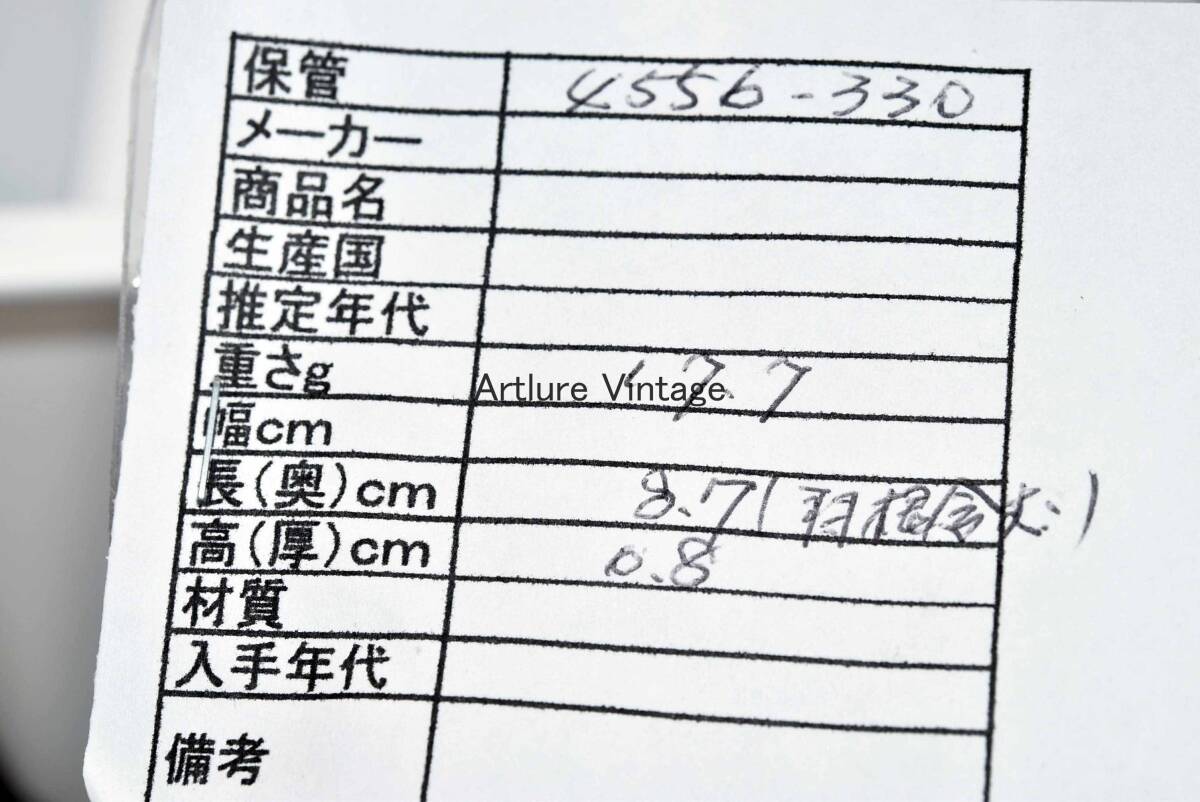 保管 4556-330
メーカー
商品名
生産国
推定年代
重さg 17.7
Artlure Vintage
幅cm
長(奥)cm 8.7(羽根含む)
高(厚)cm 0.8
材質
入手年代
備考